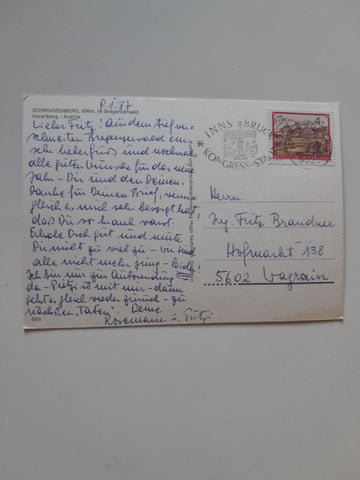 SCHWARZENBERG, 696m, im Bregenzerwald
Vorarlberg - Austria
P.i.87
Lieber Fritz! Aus dem tief ver-
schneiten Bregenzerwald ein
sehr lieber Gruß und nochmal
alle guten Wünsche für das neue
Jahr - Dir und den Deinen.
Danke für Deinen Brief, wenn-
gleich es uns sehr besorgt hat,
daß Du so krank warst.
Erhole Dich gut und mute
Dir nicht zu viel zu - wir sind
alle nicht mehr jung - leider!
Ich bin nur zur
da - Fritz ist mit mir - dann
geht es gleich wieder zurück - zu
nächsten "Taten". Deine
Rosemarie u. Fritz
INNSBRUCK
KONGRESS-STADT
4 S
Herrn
Ing. Fritz Brandner
Hofmarkt 138
5602 Wagrain